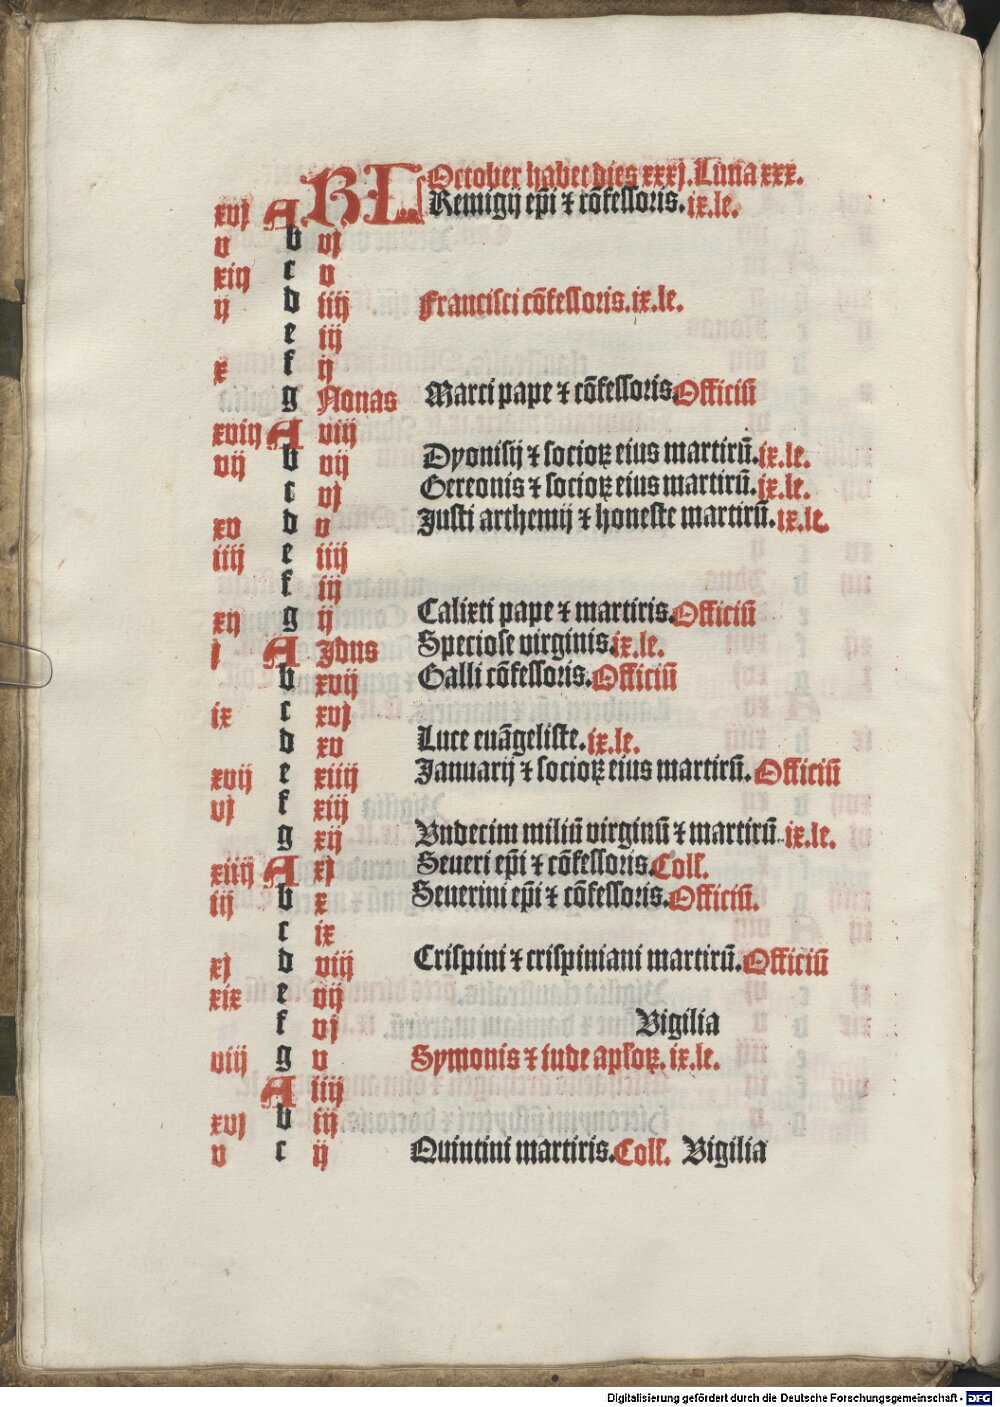 October habet dies xxxj. Luna xxx.
xvj A KL Remigij ep̄i ⁊ cōfessoris. ix. le.
v b vj
xiij c v
ij d iiij Francisci cōfessoris. ix. le.
e iij
x f ij
g Nonas Marci pape ⁊ cōfessoris Officiū
xviij A viij
vij b vij Dyonisij ⁊ socioꝝ eius martirū. ix. le.
c vj Gereonis ⁊ socioꝝ eius martirū. ix. le.
xv d v Justi arthemij ⁊ honeste martirū. ix. le.
iiij e iiij
f iij
xij g ij Calixti pape ⁊ martiris. Officiū
j A Jdus Speciose virginis. ix. le.
b xvij Galli cōfessoris. Officiū
ix c xvj
d xv Luce euāgeliste. ix. le.
xvij e xiiij Januarij ⁊ socioꝝ eius martirū. Officiū
vj f xiij
g xij Vndecim miliū virginū ⁊ martirū. ix. le.
xiiij A xj Seueri ep̄i ⁊ cōfessoris. Coll.
iij b x Seuerini ep̄i ⁊ cōfessoris. Officiū.
c ix
xj d viij Crispini ⁊ crispiniani martirū. Officiū
xix e vij
f vj Vigilia
viij g v Symonis ⁊ iude apl'oꝝ. ix. le.
A iiij
xvj b iij
v c ij Quintini martiris. Coll. Vigilia
Digitalisierung gefördert durch die Deutsche Forschungsgemeinschaft - DFG